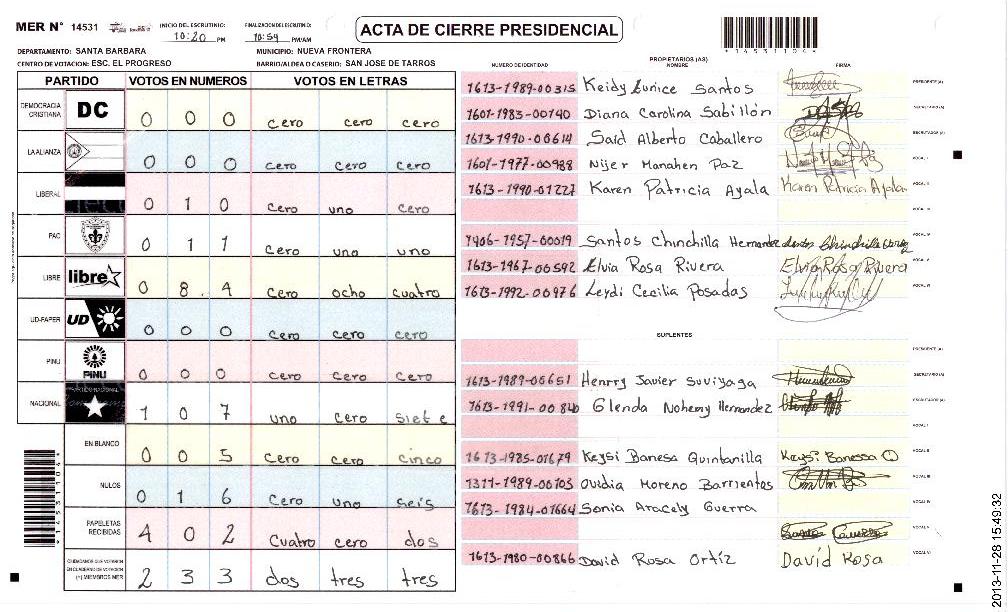 MER N° 14531 INICIO DEL ESCRUTINIO: 10:20 PM FINALIZACION DEL ESCRUTINIO: 10:54 PM/AM
ACTA DE CIERRE PRESIDENCIAL
*14531104*
DEPARTAMENTO: SANTA BARBARA MUNICIPIO: NUEVA FRONTERA
CENTRO DE VOTACION: ESC. EL PROGRESO BARRIO/ALDEA O CASERIO: SAN JOSE DE TARROS
PARTIDO VOTOS EN NUMEROS VOTOS EN LETRAS
DEMOCRACIA CRISTIANA DC 0 0 0 cero cero cero
LA ALIANZA 0 0 0 cero cero cero
LIBERAL 0 1 0 cero uno cero
PAC 0 1 1 cero uno uno
LIBRE libre 0 8 4 cero ocho cuatro
UD-FAPER UD 0 0 0 cero cero cero
PINU PINU 0 0 0 cero cero cero
NACIONAL PARTIDO NACIONAL 1 0 7 uno cero siete
EN BLANCO 0 0 5 cero cero cinco
NULOS 0 1 6 cero uno seis
PAPELETAS RECIBIDAS 4 0 2 cuatro cero dos
CIUDADANOS QUE VOTARON EN CUADERNO DE VOTACION (+) MIEMBROS MER 2 3 3 dos tres tres
*14531104*
PROPIETARIOS (AS)
NUMERO DE IDENTIDAD NOMBRE FIRMA
1613-1989-00315 Keidy Eunice Santos PRESIDENTE (A)
1601-1983-00740 Diana Carolina Sabillón SECRETARIO (A)
1613-1990-00614 Said Alberto Caballero ESCRUTADOR (A)
1601-1977-00988 Nijer Manahen Paz VOCAL I
1613-1990-01227 Karen Patricia Ayala Karen Patricia Ayala VOCAL II
VOCAL III
1406-1957-00019 Santos Chinchilla Hernandez VOCAL IV
1613-1967-00592 Elvia Rosa Rivera Elvia Rosa Rivera VOCAL V
1613-1992-00976 Leydi Cecilia Posadas VOCAL VI
SUPLENTES
PRESIDENTE (A)
1613-1989-00651 Henrry Javier Suviyaga SECRETARIO (A)
1613-1991-00840 Glenda Nohemy Hernandez ESCRUTADOR (A)
VOCAL I
1613-1985-01679 Keysi Banesa Quintanilla Keysi Banessa Q VOCAL II
1311-1989-00103 Ovidia Moreno Barrientos VOCAL III
1613-1984-01664 Sonia Aracely Guerra VOCAL IV
VOCAL V
1613-1980-00866 David Rosa Ortíz David Rosa VOCAL VI
2013-11-28 15:49:32